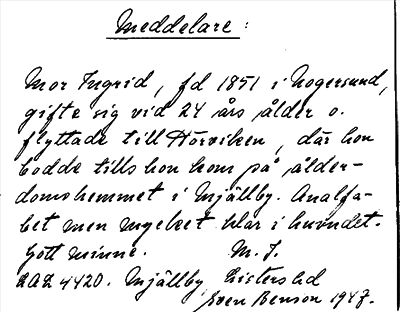 Meddelare:
Mor Ingrid, fd 1851 i Nogersund,
gifte sig vid 24 års ålder o.
flyttade till Hörviken, där hon
bodde tills hon kom på ålder-
domshemmet i Mjällby. Analfa-
bet men mycket klar i huvudet.
Gott minne. M. I.
LAL 4420. Mjällby Listers hd
Sven Benson 1947.